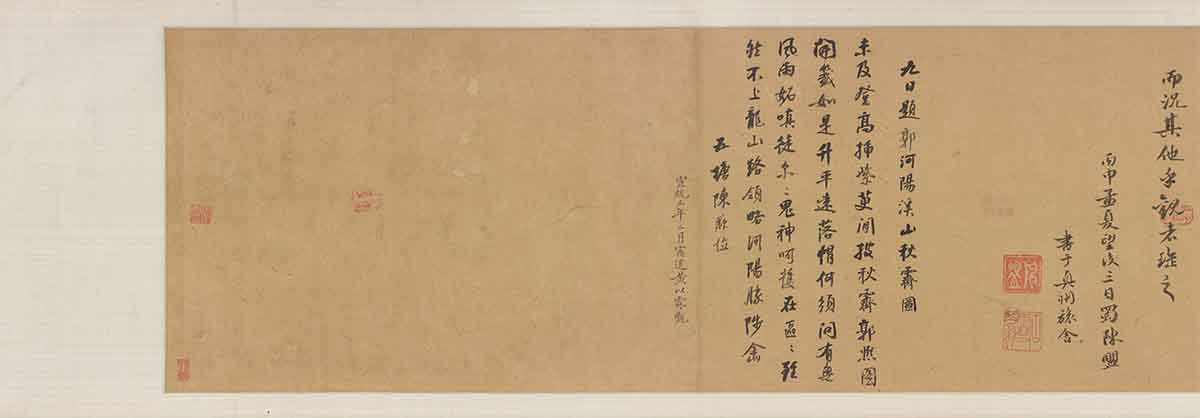 而況其他乎觀者珍之
丙申孟夏望後三日蜀陳盟
書于真州旅舍
九日題郭河陽溪山秋霽圖
未及登高插紫萸閒披秋霽郭熙圖
開茲如是升平遠落帽何須問有無
風雨妬嗔徒尔〻鬼神呵護在區〻
然不上龍山路領略河陽勝
五塘陳
宣統三年三月